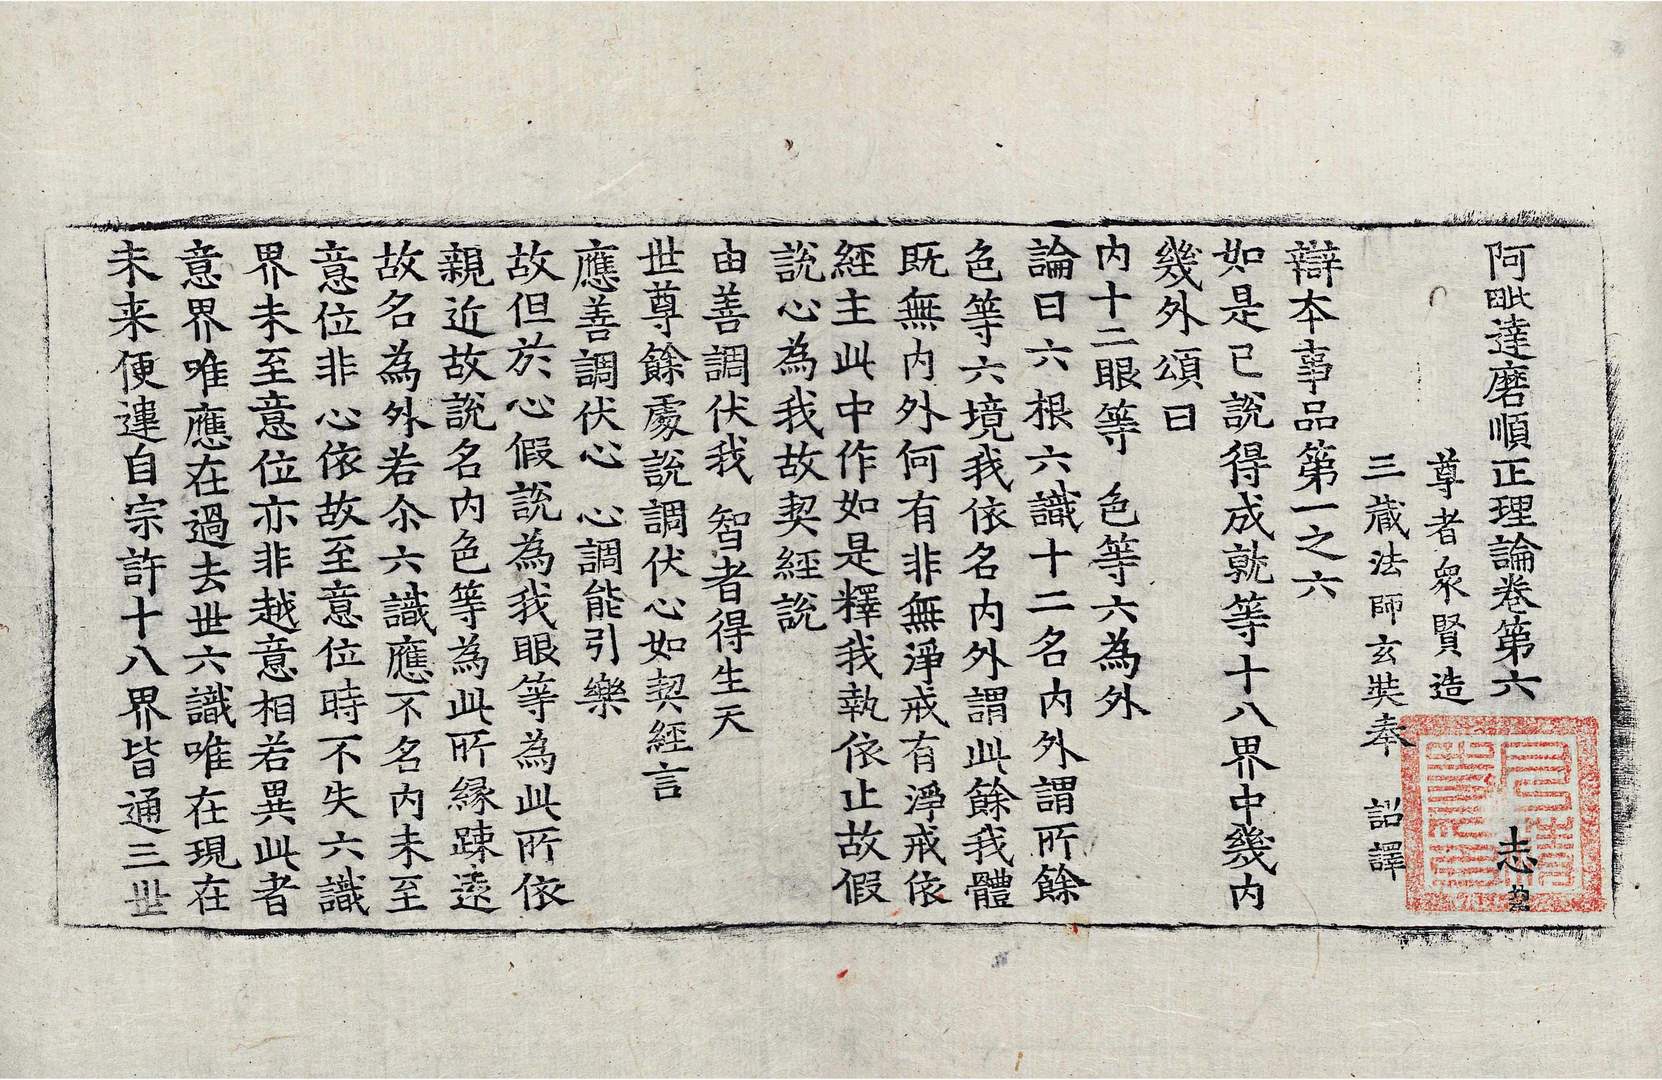 阿毗達磨順正理論卷第六
志
尊者衆賢造
三藏法師玄奘奉 詔譯
辯本事品第一之六
如是已說得成就等十八界中幾內
幾外頌曰
內十二眼等 色等六為外
論曰六根六識十二名內外謂所餘
色等六境我依名內外謂此餘我體
既無內外何有非無淨戒有淨戒依
經主此中作如是釋我執依止故假
說心為我故契經說
由善調伏我 智者得生天
世尊餘處說調伏心如契經言
應善調伏心 心調能引樂
故但於心假說為我眼等為此所依
親近故說名內色等為此所緣踈遠
故名為外若尒六識應不名內未至
意位非心依故至意位時不失六識
界未至意位亦非越意相若異此者
意界唯應在過去世六識唯在現在
未来便違自宗許十八界皆通三世